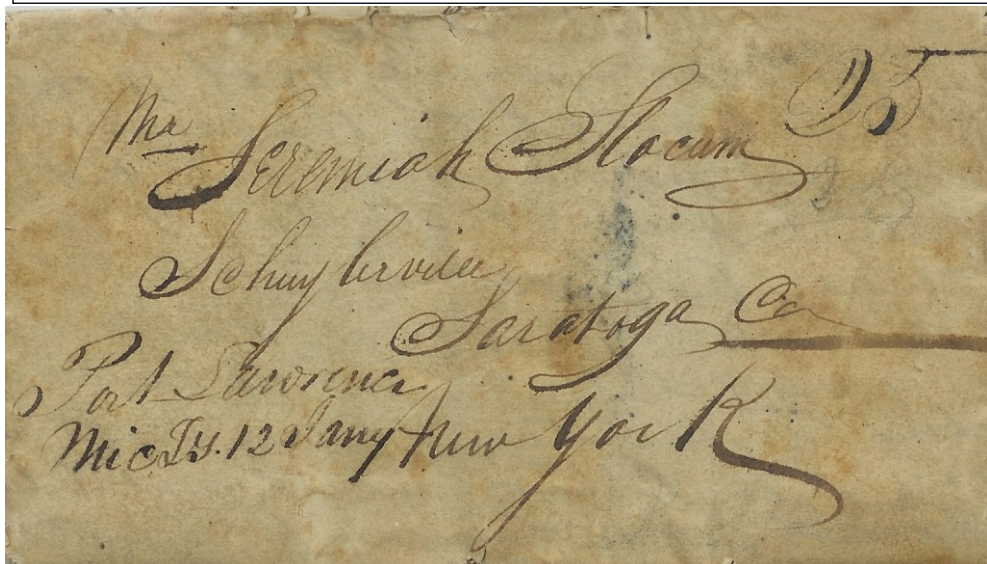 25
Mr Jeremiah Slocum
Schuylerville
Saratoga Co
Port Lawrence
Mic Ty. 12 Jany New York